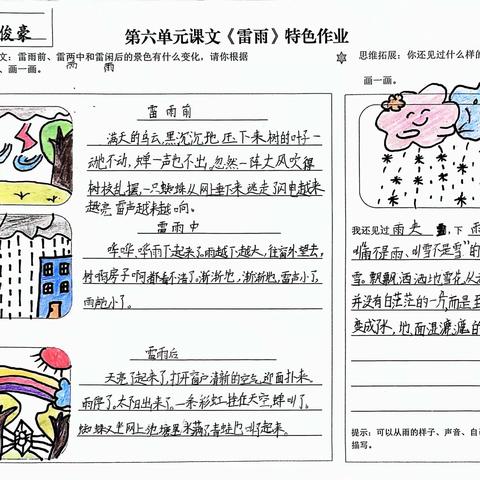 俊豪
第六单元课文《雷雨》特色作业
文：雷雨前、雷雨中和雷雨后的景色有什么变化，请你根据
、画一画。
雷雨前
满天的乌云,黑沉沉地压下来,树的叶子一
动不动,蝉一声也不出,忽然一阵大风吹得
树枝乱摆,一只蜘蛛从网上垂下来逃走了闪电越来
越亮,雷声越来越响。
雷雨中
哗,哗,哗雨下起来了,雨越下越大,往窗外望去,
树啊房子啊都看不清了,渐渐地,渐渐地,雷声小了,
雨声小了。
雷雨后
天亮了起来了,打开窗户清新的空气迎面扑来。
雨停了。太阳出来了。一条彩虹挂在天空,蝉叫了。
蜘蛛又坐网上池塘里水满了青蛙也叫起来。
思维拓展：你还见过什么样的
画一画。
我还见过雨夹雪,下
嘴不是雨、叫雪不是雪"的
雪。飘飘洒洒地雪花从
并没有白茫茫的一片,而是
变成了水,地面湿漉漉的
提示：可以从雨的样子、声音、自
描写。